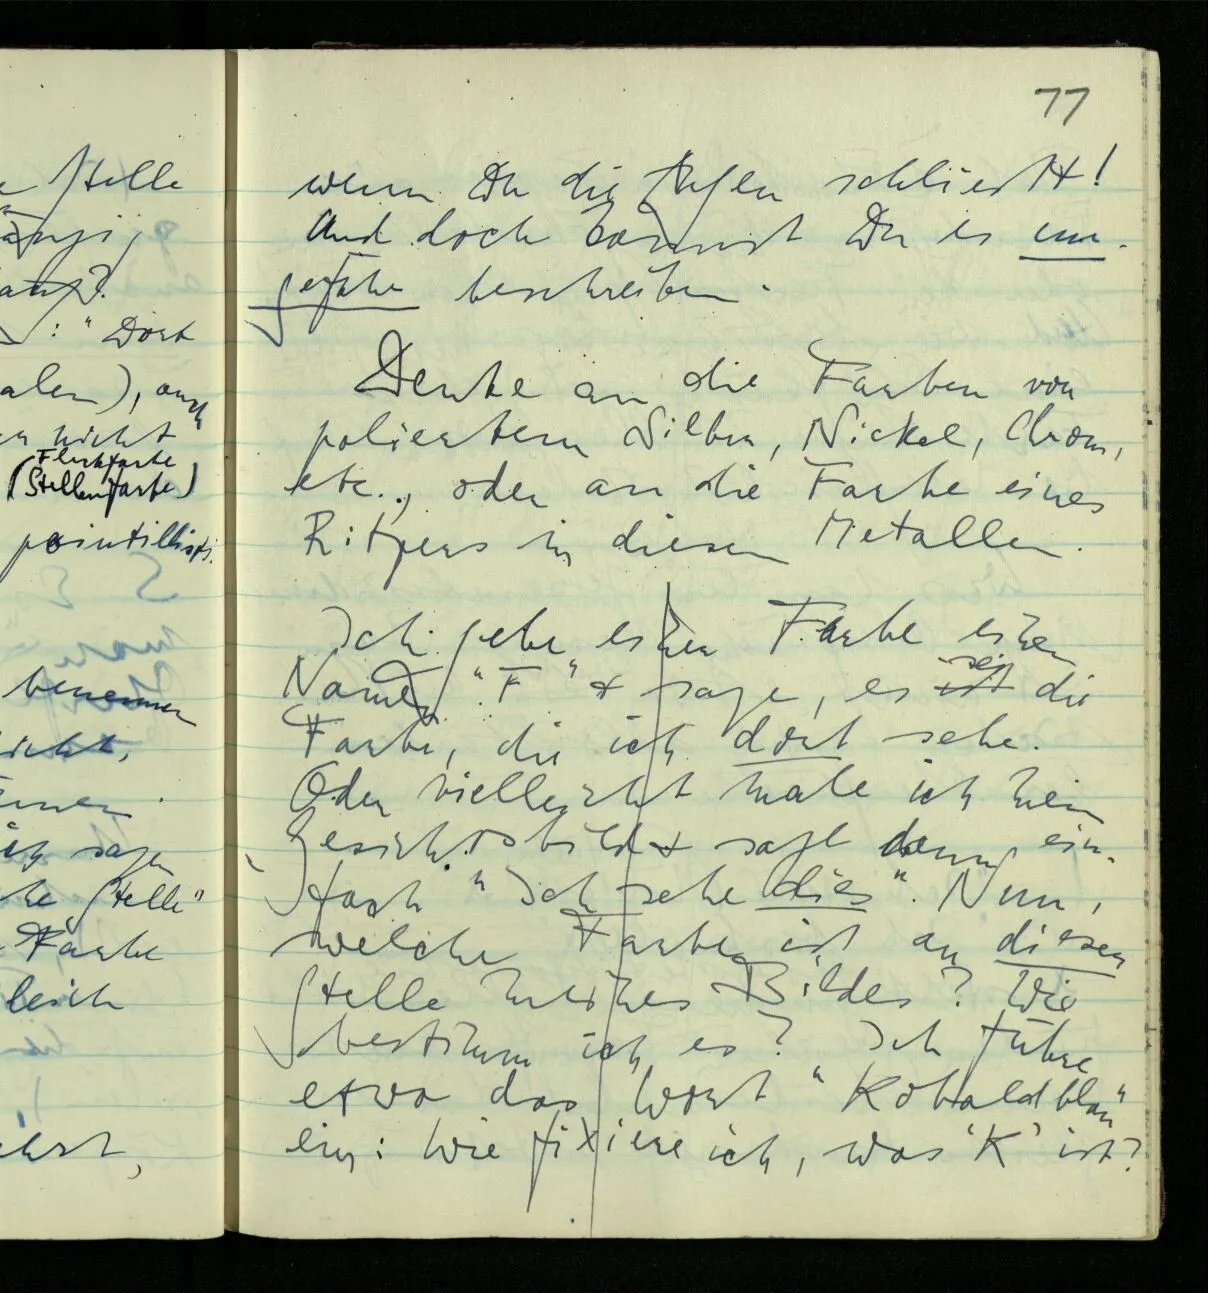 77
Stelle
: "Dort
alen), auch
nicht"
Fleckfarbe
(Stellenfarbe)
pointillisti.
benennen
nicht,
ich sagen
Stelle"
Farbe
leich
wenn Du die Augen schließt!
Und doch kannst Du es un-
gefähr beschreiben.
Denke an die Farben von
poliertem Silber, Nickel, Chrom,
etc., oder an die Farbe eines
Ritzers in diesen Metallen.
Ich gebe einer Farbe einen
Namen "F" & sage, es ist sei die
Farbe, die ich dort sehe.
Oder vielleicht male ich mein
Gesichtsbild & sage dann ein-
fach "Ich sehe dies". Nun,
welche Farbe ist an dieser
Stelle meines Bildes? Wie
bestimme ich es? Ich führe
etwa das Wort "Kobaldblau"
ein: Wie fixiere ich, was 'K' ist?